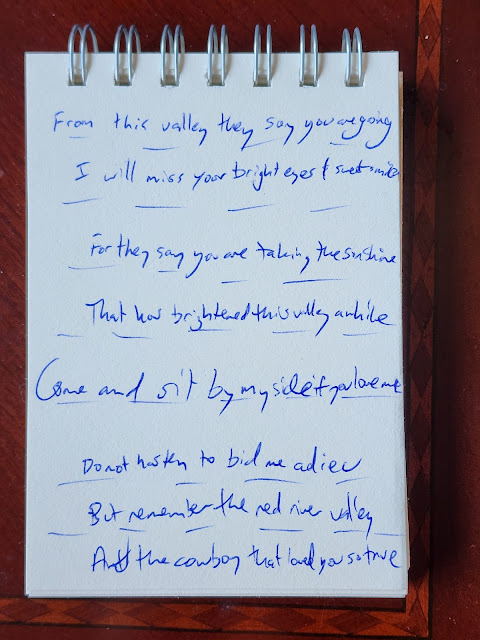 From this valley they say you are going
I will miss your bright eyes & sweet smile
For they say you are taking the sunshine
That has brightened this valley awhile
Come and sit by my side if you love me
Do not hasten to bid me adieu
But remember the red river valley
And the cowboy that loved you so true